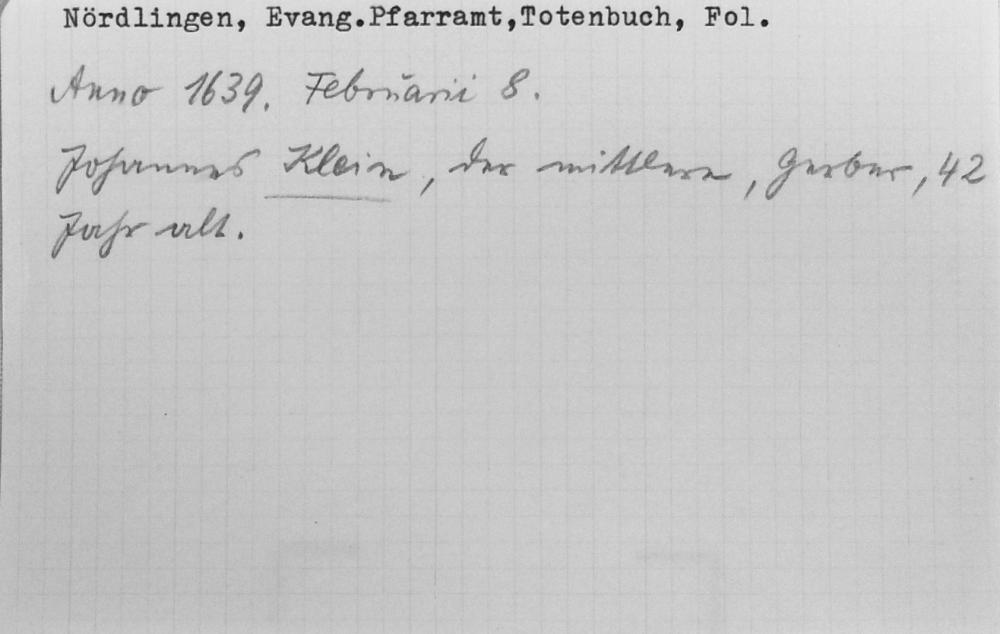 Nördlingen, Evang.Pfarramt,Totenbuch, Fol.
Anno 1639. Februarii 8.
Johannes Klein, der mittlere, Gerber, 42
Jahr alt.